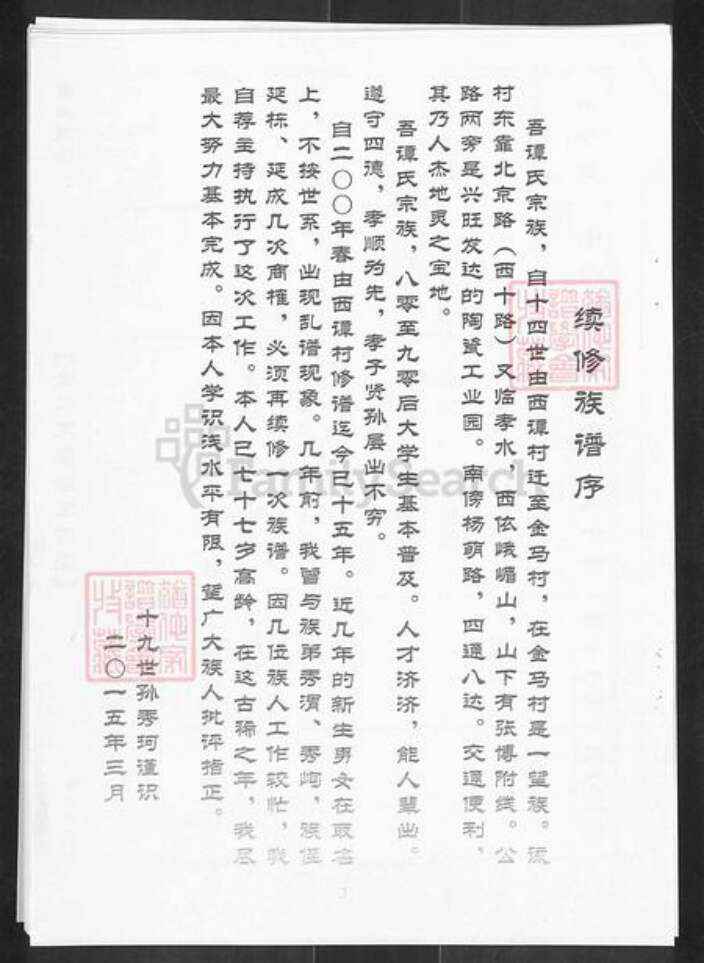 续修族谱序
吾谭氏宗族，自十四世由西谭村迁至金马村，在金马村是一望族。该
村东靠北京路（西十路）又临孝水，西依峨嵋山，山下有张博附线。公
路两旁是兴旺发达的陶瓷工业园。南傍杨萌路，四通八达。交通便利，
其乃人杰地灵之宝地。
吾谭氏宗族，八零至九零后大学生基本普及。人才济济，能人辈出。
遵守四德，孝顺为先，孝子贤孙层出不穷。
自二〇〇年春由西谭村修谱迄今已十五年。近几年的新生男女在取名
上，不按世系，出现乱谱现象。几年前，我曾与族弟秀渭、秀峋，族侄
延栋、延成几次商榷，必须再续修一次族谱。因几位族人工作较忙，我
自荐主持执行了这次工作。本人已七十七岁高龄，在这古稀之年，我尽
最大努力基本完成。因本人学识浅水平有限，望广大族人批评指正。
十九世孙秀珂谨识
二〇一五年三月
FamilySearch
3